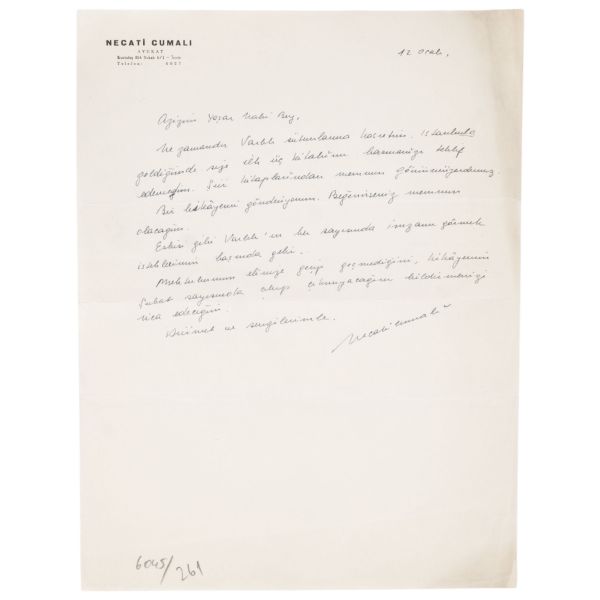 NECATİ CUMALI
AVUKAT
Telefon: 6027
12 Ocak,
Azizim Yaşar Nabi Bey,
Ne zamandır Varlık sütunlarına hasretim. İstanbula
geldiğimde size ilk üç kitabımı basmanızı teklif
edeceğim. Şiir kitaplarından memnun görünüyordunuz.
Bir hikâyemi gönderiyorum. Beğenirseniz memnun
olacağım.
Eskisi gibi Varlık'ın her sayısında imzamı görmek
isteklerimin başında gelir.
Mektubumun elinize geçip geçmediğini, hikâyemin
Şubat sayısında çıkıp çıkmıyacağını bildirmenizi
rica edeceğim.
Hürmet ve sevgilerimle.
Necati Cumalı
6045/261